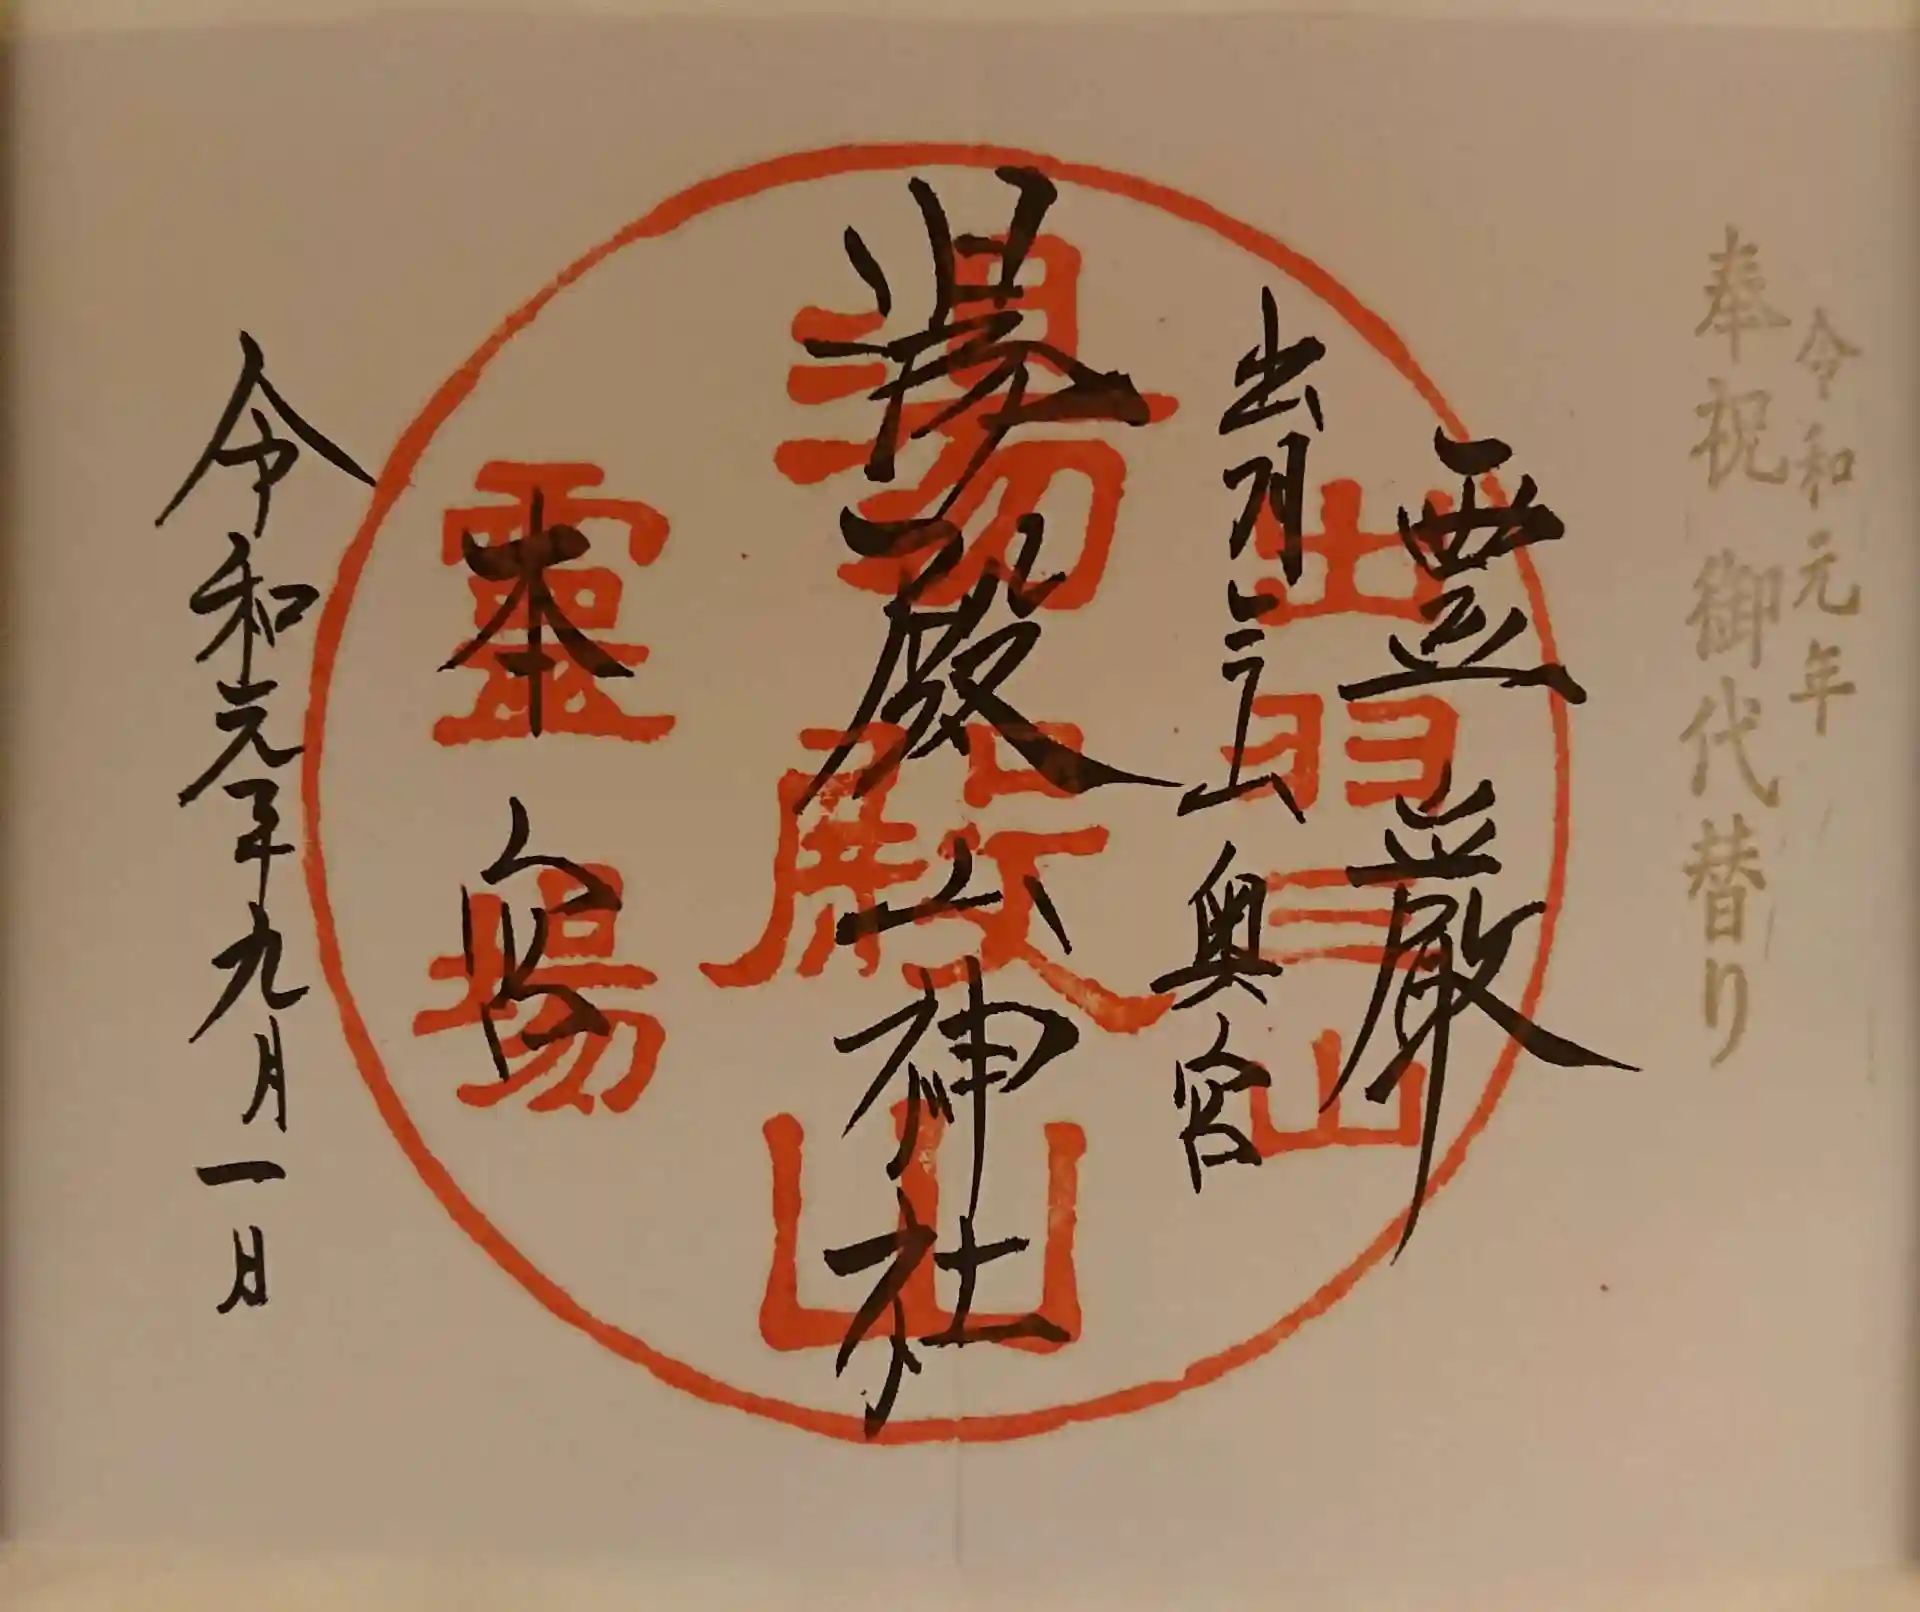 令和元年
奉祝 御代替り
霊巌
出羽三山奥宮
湯殿山神社
本宮
令和元年九月一日
出羽三山
湯殿山
靈場